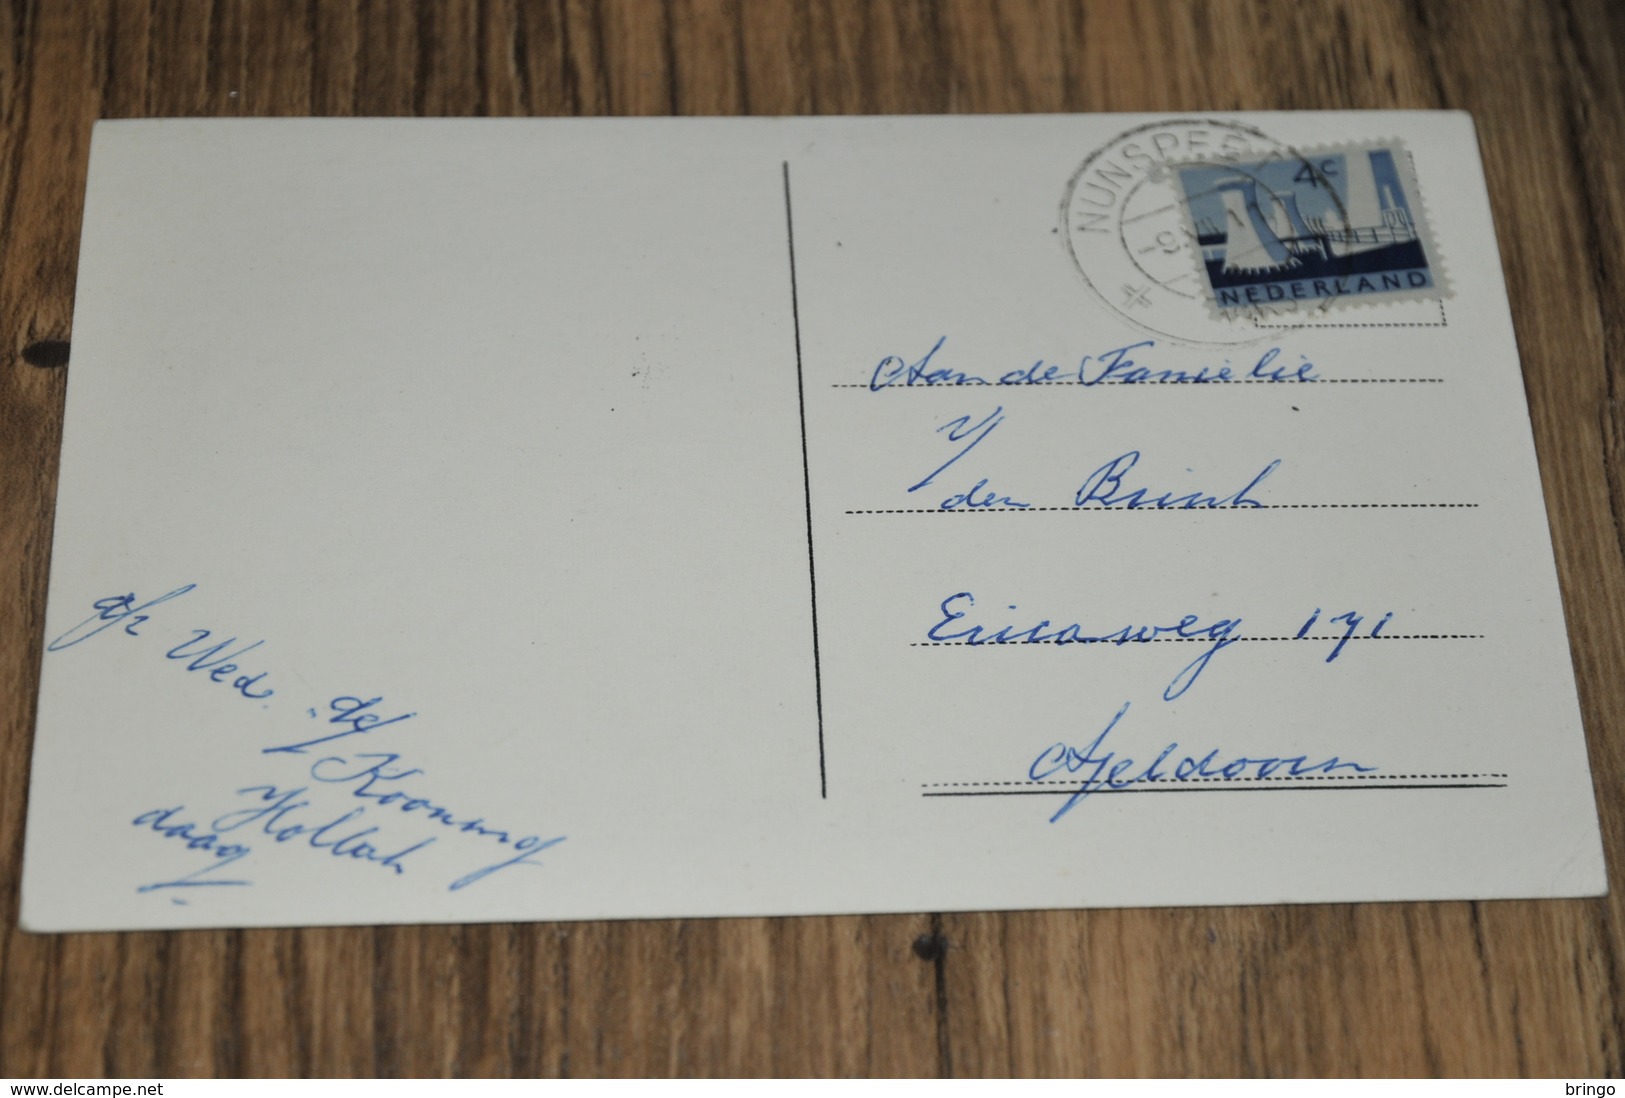 NUNSPEET
4c
NEDERLAND
Aan de Familie
v/
den Brink
Ericaweg 171
Apeldoorn
afz Wed. de
Koning
Hollak
www.delcampe.net
bringo